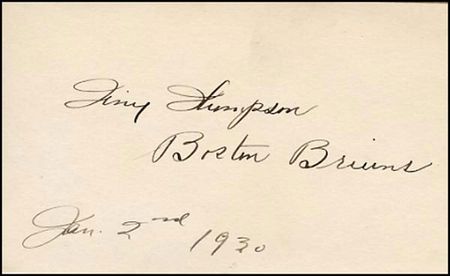 Tiny Thompson
Boston Bruins
Jan. 2nd 1930